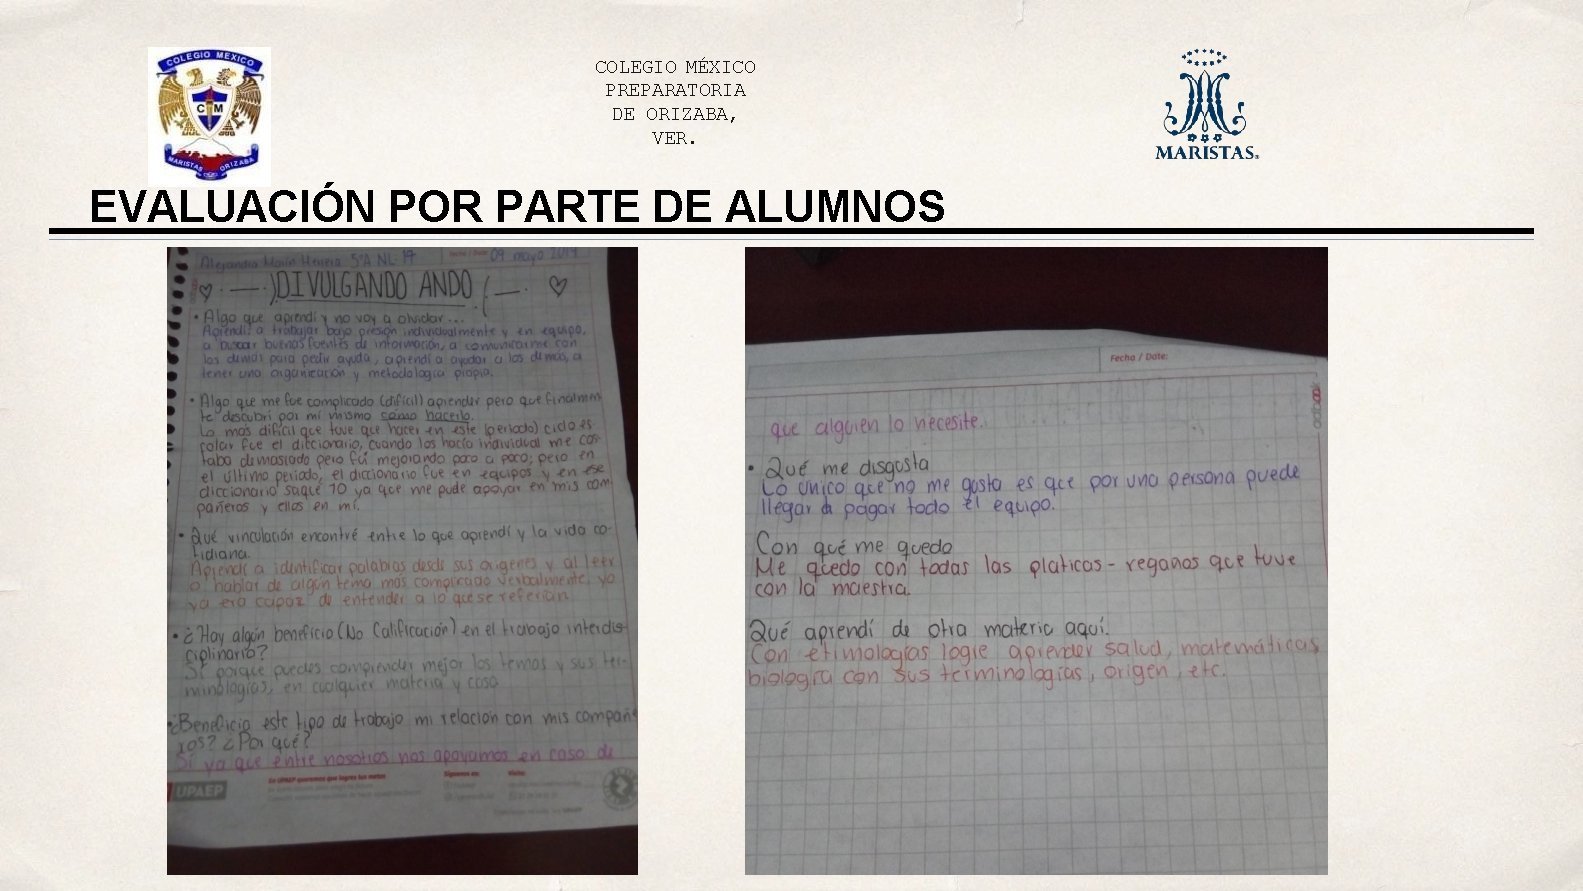 COLEGIO MEXICO
C M
MARISTAS ORIZABA
COLEGIO MÉXICO
PREPARATORIA
DE ORIZABA,
VER.
MARISTAS®
EVALUACIÓN POR PARTE DE ALUMNOS
Alejandra Marín Herrera 5°A NL. 17 Fecha / Date: 09 mayo 2019
DIVULGANDO ANDO
• Algo que aprendí y no voy a olvidar...
Aprendí a trabajar bajo presión individualmente y en equipo,
a buscar buenas fuentes de información, a comunicarme con
los demás para pedir ayuda, aprendí a ayudar a los demás, a
tener una organización y metodología propia.
• Algo que me fue complicado (difícil) aprender pero que finalmen
te descubrí por mí mismo como hacerlo.
Lo mas difícil que tuve que hacer en este (periodo) ciclo es-
colar fue el diccionario, cuando los hacía individual me cos-
taba demasiado pero fuí mejorando poco a poco; pero en
el último periodo, el diccionario fue en equipos y en ese
diccionario saqué 10 ya que me pude apoyar en mis com
pañeros y ellos en mí.
• Qué vinculación encontré entre lo que aprendí y la vida co-
tidiana.
Aprendí a identificar palabras desde sus orígenes y al leer
o hablar de algún tema más complicado verbalmente, yo
ya era capaz de entender a lo que se referían.
• ¿Hay algún beneficio (No Calificación) en el trabajo interdis-
ciplinario?
Sí porque puedes comprender mejor los temas y sus ter-
minologías, en cualquier materia y cosa
• ¿Beneficia este tipo de trabajo mi relación con mis compañe
ros? ¿Por qué?
Sí ya que entre nosotros nos apoyamos en caso de
UPAEP
En UPAEP queremos que logres tus metas
Síguenos en:
Visita:
Fecha / Date:
que alguien lo necesite.
• Qué me disgusta
Lo único que no me gusta es que por una persona puede
llegar a pagar todo el equipo.
Con qué me quedo
Me quedo con todas las platicas - regaños que tuve
con la maestra.
Qué aprendí de otra materia aquí.
Con etimologías logre aprender salud, matemáticas,
biología con sus terminologías, origen, etc.